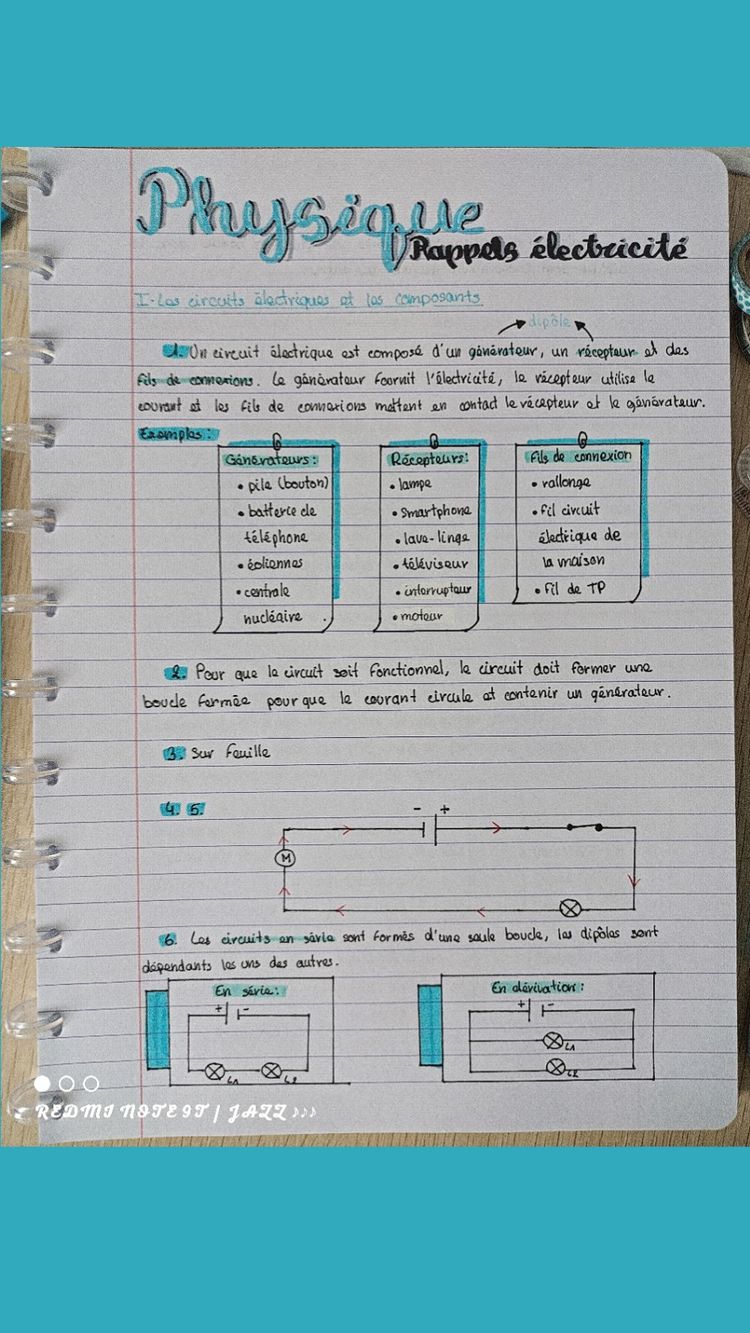 Physique
Rappels électricité
I-Les circuits électriques et les composants
dipôle
1. Un circuit électrique est composé d'un générateur, un récepteur et des
fils de connexions. Le générateur fournit l'électricité, le récepteur utilise le
courant et les fils de connexions mettent en contact le récepteur et le générateur.
Exemples:
Générateurs:
• pile (bouton)
• batterie de
téléphone
• éoliennes
• centrale
nucléaire.
Récepteurs:
• lampe
• smartphone
• lave-linge
• téléviseur
• interrupteur
• moteur
Fils de connexion
• rallonge
• fil circuit
électrique de
la maison
• fil de TP
2. Pour que le circuit soit fonctionnel, le circuit doit former une
boucle fermée pour que le courant circule et contenir un générateur.
3. Sur feuille
4. 5.
- +
M
6. Les circuits en série sont formés d'une seule boucle, les dipôles sont
dépendants les uns des autres.
En série:
+ -
L1 L2
En dérivation:
+ -
L1
L2
REDMI NOTE 9T | JAZZ ♪♪♪